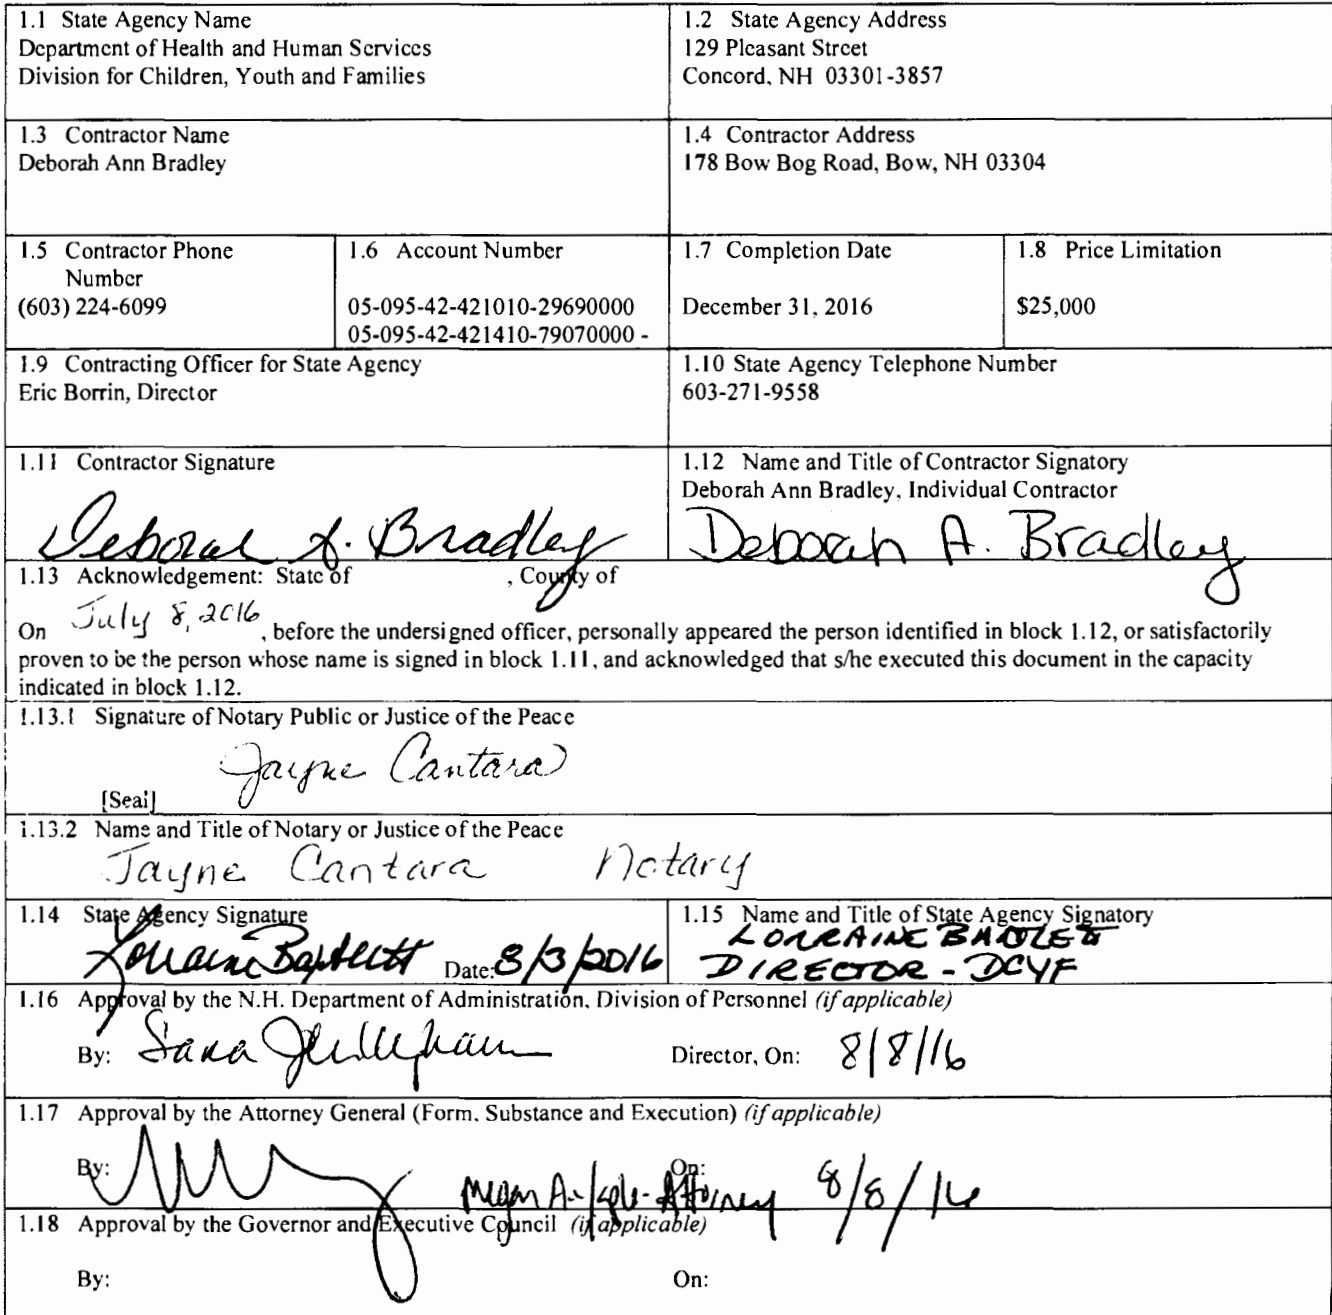 1.1 State Agency Name
Department of Health and Human Services
Division for Children, Youth and Families
1.2 State Agency Address
129 Pleasant Street
Concord, NH 03301-3857
1.3 Contractor Name
Deborah Ann Bradley
1.4 Contractor Address
178 Bow Bog Road, Bow, NH 03304
1.5 Contractor Phone
Number
(603) 224-6099
1.6 Account Number
05-095-42-421010-29690000
05-095-42-421410-79070000 -
1.7 Completion Date
December 31, 2016
1.8 Price Limitation
$25,000
1.9 Contracting Officer for State Agency
Eric Borrin, Director
1.10 State Agency Telephone Number
603-271-9558
1.11 Contractor Signature
Deborah A. Bradley
1.12 Name and Title of Contractor Signatory
Deborah Ann Bradley, Individual Contractor
Deborah A. Bradley
1.13 Acknowledgement: State of , County of
On July 8, 2016, before the undersigned officer, personally appeared the person identified in block 1.12, or satisfactorily
proven to be the person whose name is signed in block 1.11, and acknowledged that s/he executed this document in the capacity
indicated in block 1.12.
1.13.1 Signature of Notary Public or Justice of the Peace
Jayne Cantara
[Seal]
1.13.2 Name and Title of Notary or Justice of the Peace
Jayne Cantara Notary
1.14 State Agency Signature
Lorraine Bartlett Date: 8/3/2016
1.15 Name and Title of State Agency Signatory
LORRAINE BARTLETT
DIRECTOR - DCYF
1.16 Approval by the N.H. Department of Administration, Division of Personnel (if applicable)
By: Sara Director, On: 8/8/16
1.17 Approval by the Attorney General (Form, Substance and Execution) (if applicable)
By: Megan A. - Attorney On: 8/8/16
1.18 Approval by the Governor and Executive Council (if applicable)
By: On: